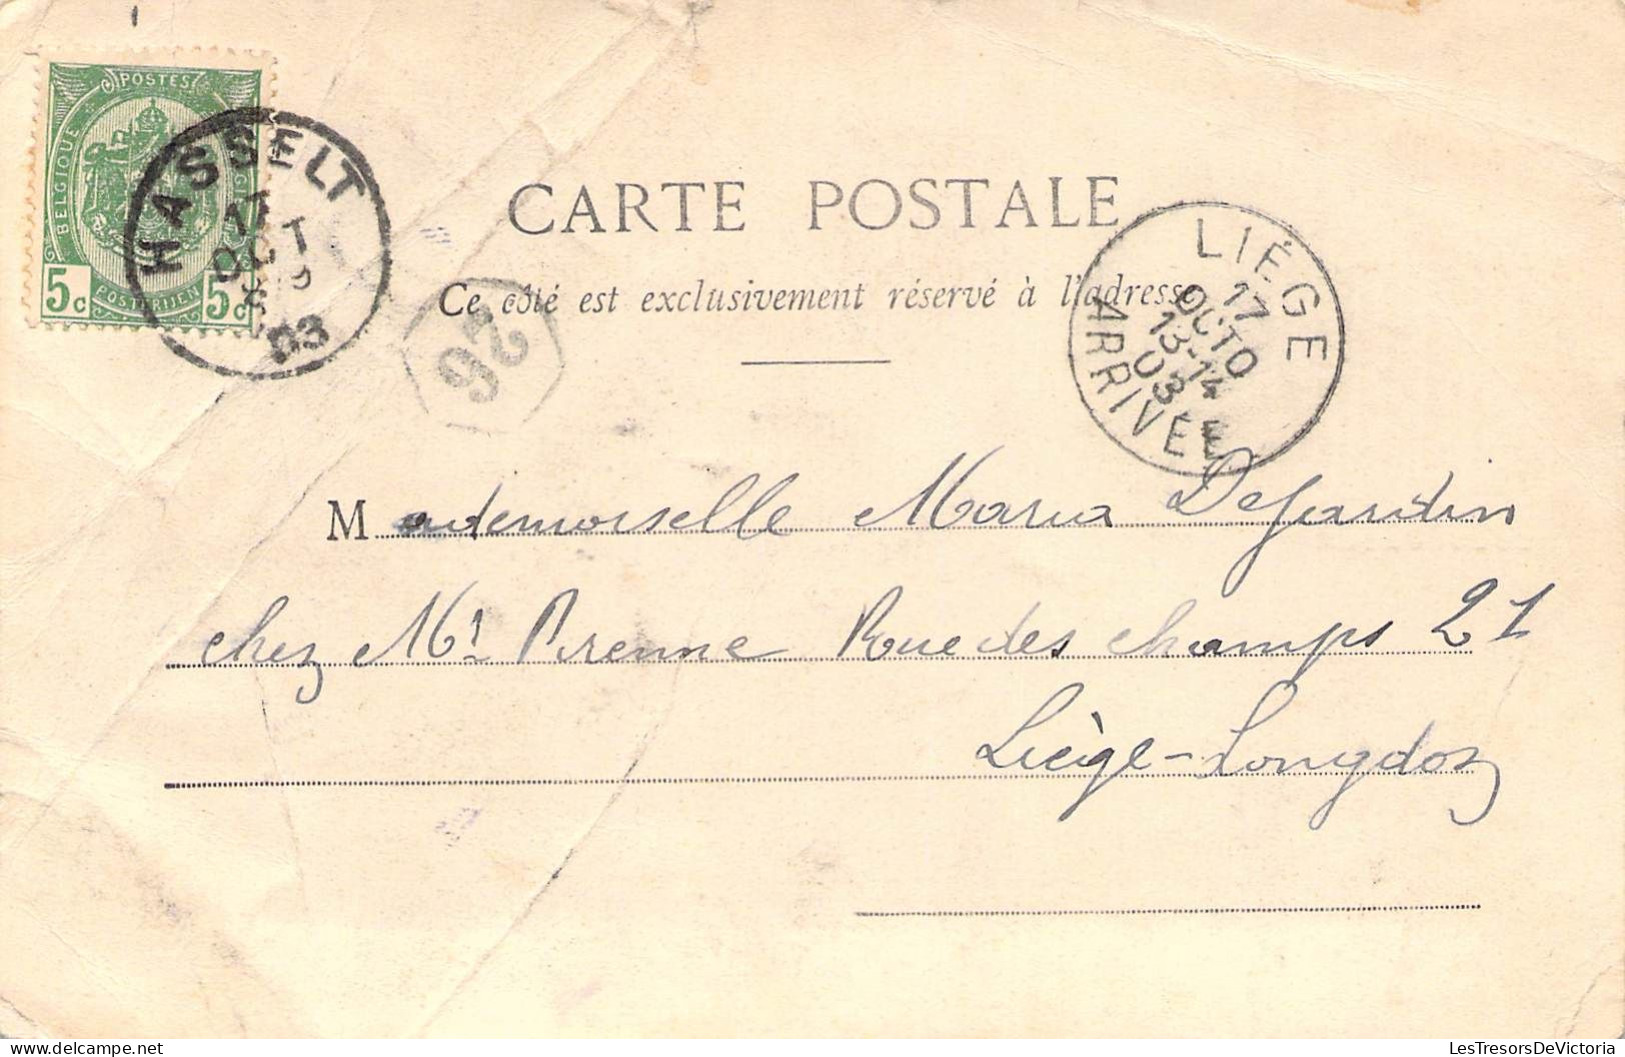 POSTES
BELGIQUE
BELGIË
5c POSTERIJEN 5c
HASSELT
17
OCT
03
CARTE POSTALE
Ce côté est exclusivement réservé à l'adresse
26
LIÉGE
17
OCTO
13-14
03
ARRIVÉE
Mademoiselle Maria Dejardin
chez Mr Prenne Rue des champs 21
Liège-Longdoz
LesTresorsDeVictoria